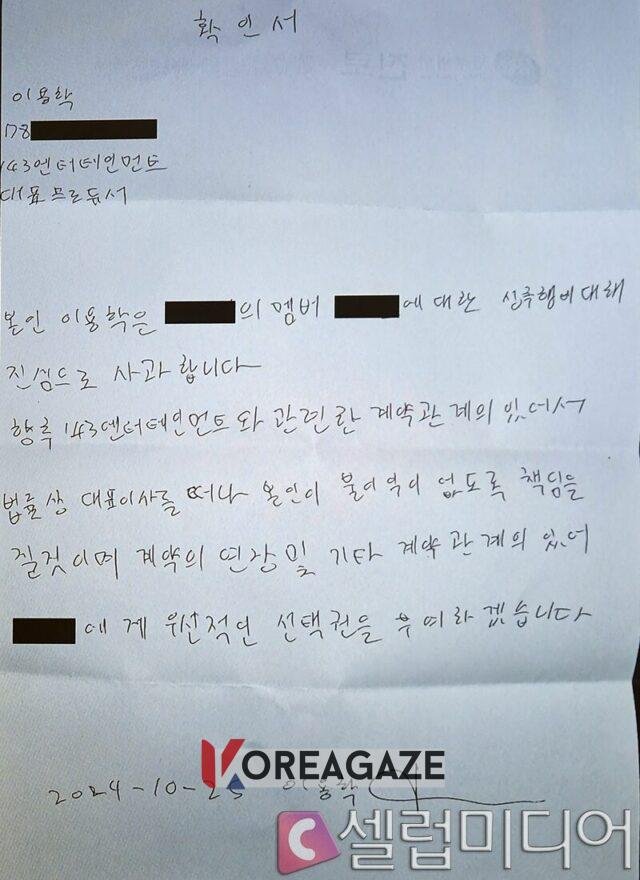 확인서
이용학
178
143엔터테인먼트
대표프로듀서
본인 이용학은 의 멤버 에 대한 성추행에 대해
진심으로 사과합니다
향후 143엔터테인먼트와 관련한 계약관계의 있어서
법률상 대표이사를 떠나 본인이 불이익이 없도록 책임을
질것이며 계약의 연장 및 기타 계약관계의 있어
에게 우선적인 선택권을 부여하겠습니다
KOREAGAZE
2024-10-25 이용학
셀럽미디어